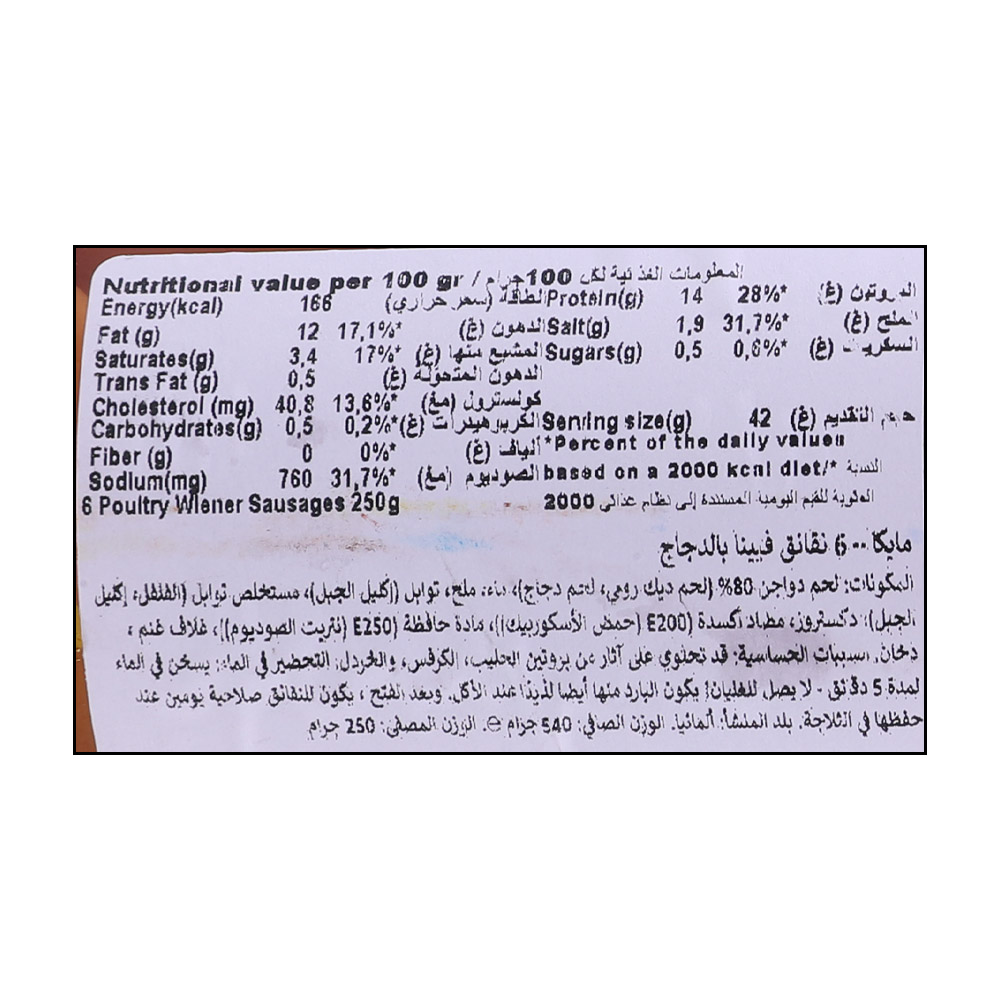 Nutritional value per 100 gr / المعلومات الغذائية لكل 100 جرام
Energy(kcal) 166 الطاقة (سعر حراري) Protein(g) 14 28%* البروتين (غ)
Fat (g) 12 17,1%* الدهون (غ) Salt(g) 1,9 31,7%* الملح (غ)
Saturates(g) 3,4 17%* المشبع منها (غ) Sugars(g) 0,5 0,6%* السكريات (غ)
Trans Fat (g) 0,5 الدهون المتحولة (غ)
Cholesterol (mg) 40,8 13,6%* كولسترول (مغ)
Carbohydrates(g) 0,5 0,2%* الكربوهيدرات (غ) Serving size(g) 42 حجم التقديم (غ)
Fiber (g) 0 0%* ألياف (غ) *Percent of the daily values
Sodium(mg) 760 31,7%* الصوديوم (مغ) based on a 2000 kcal diet/* النسبة
6 Poultry Wiener Sausages 250g المئوية للقيم اليومية المستندة إلى نظام غذائي 2000
مايكا -- 6 نقانق فيينا بالدجاج
المكونات: لحم دواجن 80% (لحم ديك رومي، لحم دجاج)، ماء، ملح، توابل (إكليل الجبل)، مستخلص توابل (الفلفل، إكليل
الجبل)، دكستروز، مضاد أكسدة (E200 (حمض الأسكوربيك))، مادة حافظة (E250 (نتريت الصوديوم))، غلاف غنم،
دخان. مسببات الحساسية: قد تحتوي على آثار من بروتين الحليب، الكرفس، والخردل. التحضير في الماء: يسخن في الماء
لمدة 5 دقائق - لا يصل للغليان! يكون البارد منها أيضا لذيذا عند الأكل. وبعد الفتح، يكون للنقانق صلاحية يومين عند
حفظها في الثلاجة. بلد المنشأ: ألمانيا. الوزن الصافي: 540 جرام e. الوزن المصفى: 250 جرام